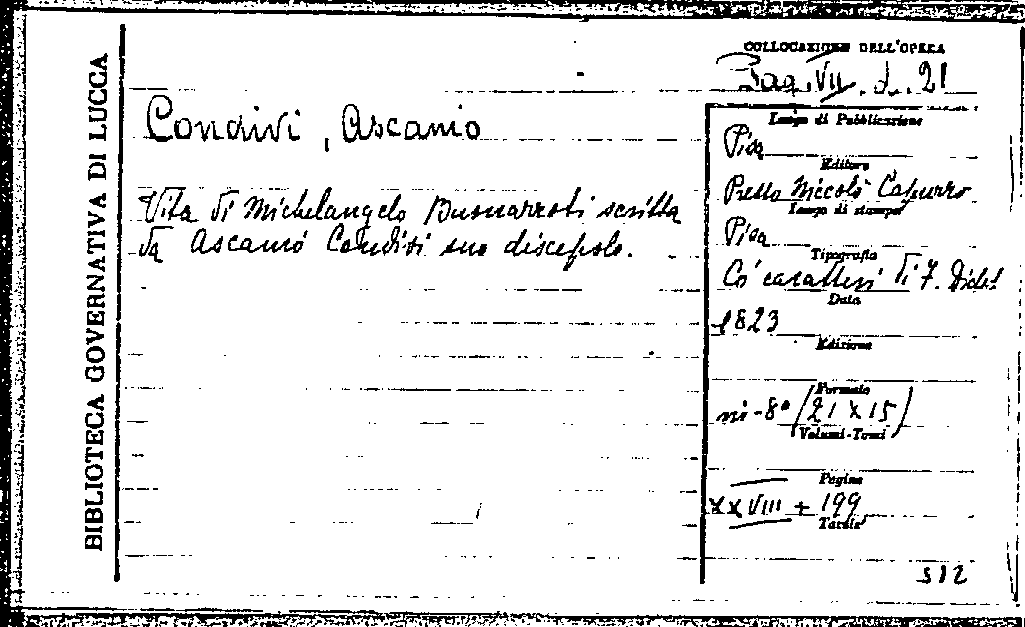 BIBLIOTECA GOVERNATIVA DI LUCCA
COLLOCAZIONE DELL'OPERA
Pag. VII. d. 21
Condivi, Ascanio
Vita di Michelangelo Buonarroti scritta
da Ascanio Condivi suo discepolo.
Luogo di Pubblicazione
Pisa
Editore
Presso Niccolò Capurro
Luogo di stampa
Pisa
Tipografia
Co' caratteri di F. Didot
Data
1823
Edizione
Formato
in-8° (21 x 15)
Volumi-Tomi
Pagine
XXVIII + 199
Tavole
512